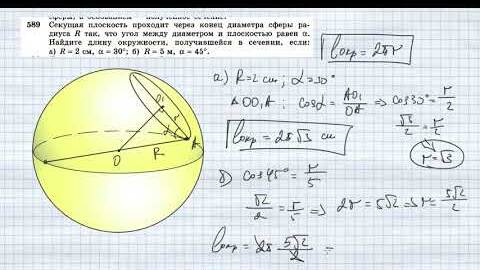 589 Секущая плоскость проходит через конец диаметра сферы ра-
диуса R так, что угол между диаметром и плоскостью равен α.
Найдите длину окружности, получившейся в сечении, если:
а) R = 2 см, α = 30°; б) R = 5 м, α = 45°.
lокр = 2πr
а) R = 2 см ; α = 30°
Δ OO₁A ; cosα = AO₁/OA ⇒ cos30° = r/2
√3/2 = r/2
r = √3
lокр = 2π√3 см
б) cos45° = r/5
√2/2 = r/5 ⇒ 2r = 5√2 ⇒ r = 5√2/2
lокр = 2π 5√2/2 =
O₁
r
α
A
O
R